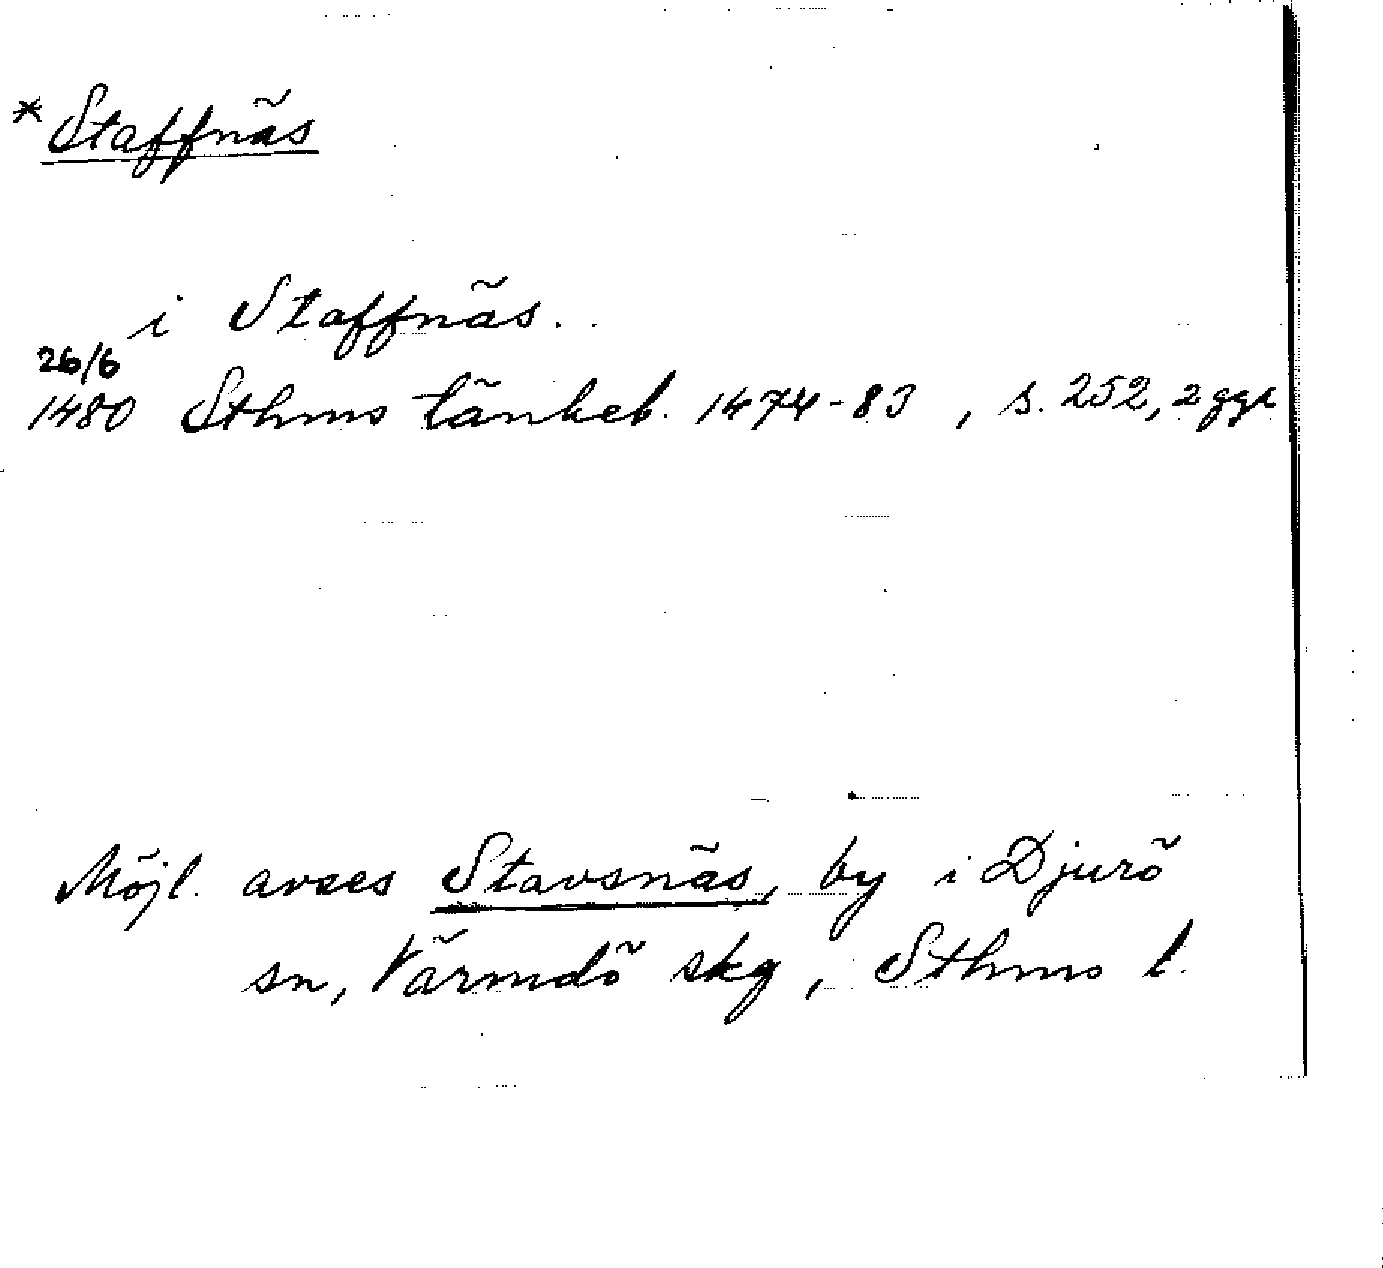 *Staffnäs
i Staffnäs.
26/6
1480 Sthms tänkeb. 1474-83, s. 252, 2 ggr
Möjl. avses Stavsnäs, by i Djurö
sn, Värmdö skg, Sthms l.